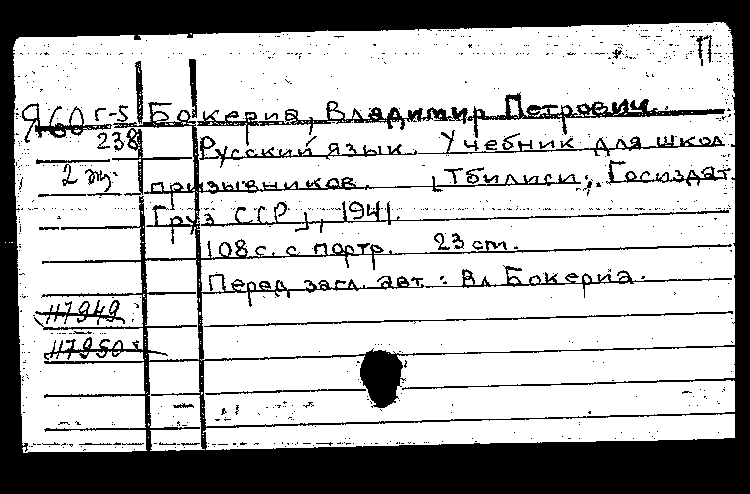 П
Я60 Г-5 Бокериа, Владимир Петрович.
238 Русский язык. Учебник для школ
2 экз. призывников. [Тбилиси], Госиздат
Груз ССР], 1941.
108 с. с портр. 23 ст.
Перед загл. авт.: Вл. Бокериа.
117949
117950